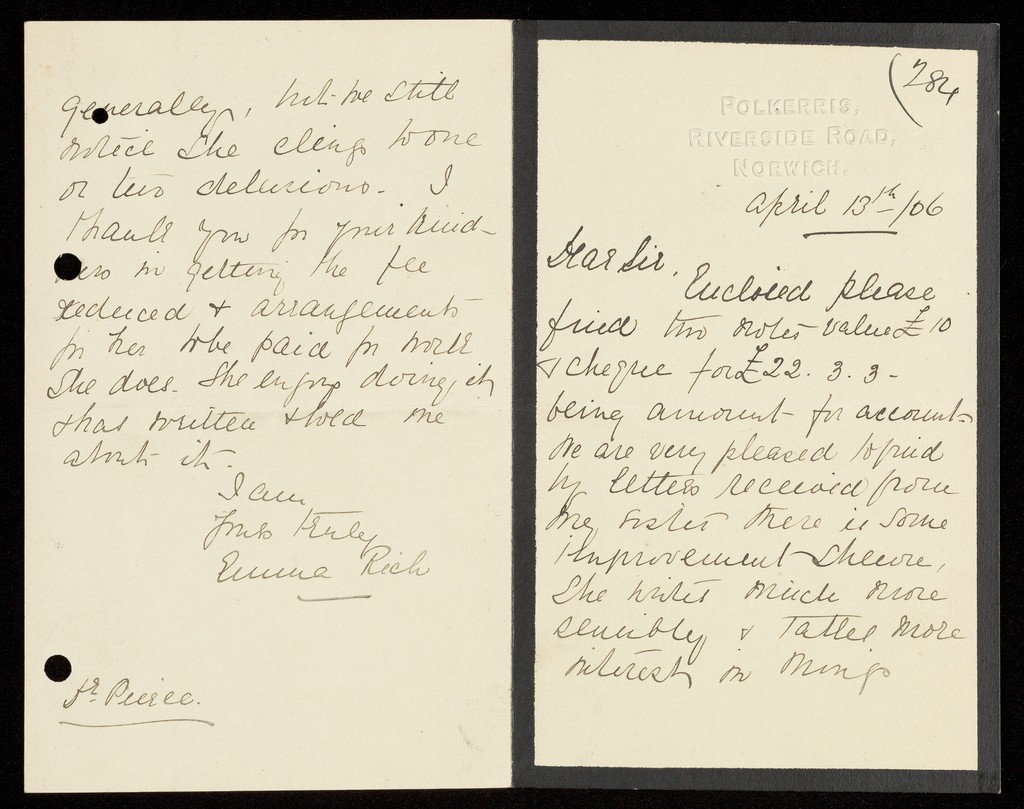 (284
POLKERRIS,
RIVERSIDE ROAD,
NORWICH.
April 13th/06
Dear Sir,
Enclosed please
find two notes value £10
& cheque for £22. 3. 3 -
being amount for account -
We are very pleased to find
by letters received from
my sister there is some
improvement shewn,
She writes much more
sensibly & takes more
interest in things
generally, but we still
notice she clings to one
or two delusions - I
thank you for your kind-
ness in getting the fee
reduced & arrangements
for her to be paid for work
she does. She enjoys doing it,
& has written & told me
about it -
I am
Yours truly
Emma Rich
Dr. Pierce.